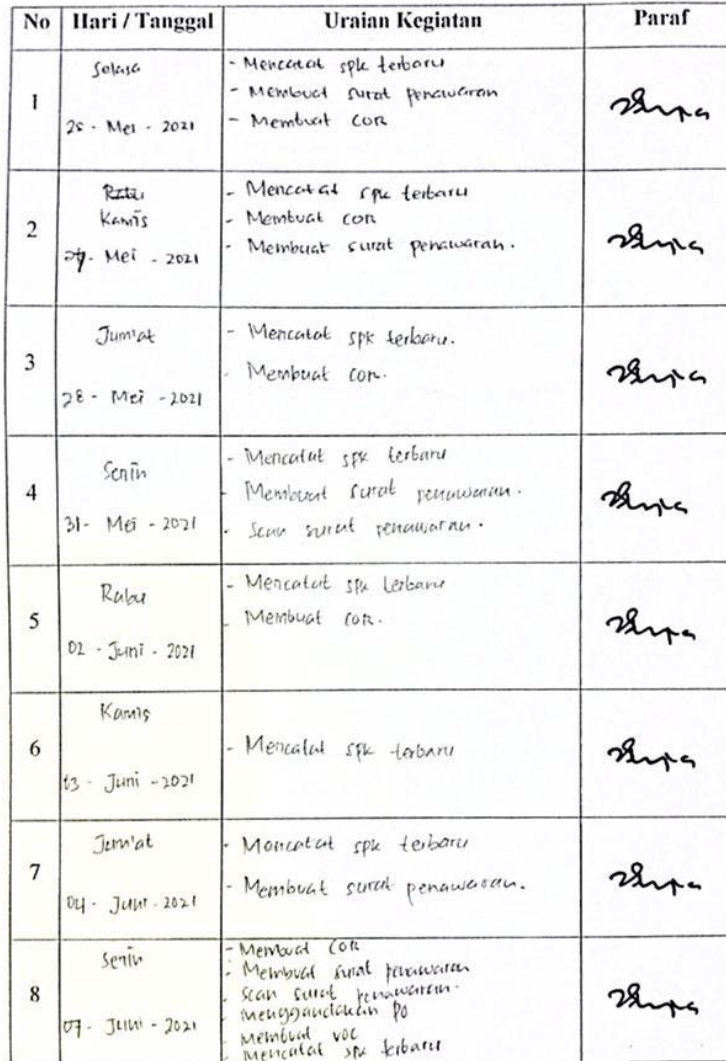 No Hari / Tanggal Uraian Kegiatan Paraf
1
Selasa
25 - Mei - 2021
- Mencatat spk terbaru
- Membuat surat penawaran
- Membuat COR
2
Kamis
27 - Mei - 2021
- Mencatat spk terbaru
- Membuat COR
- Membuat surat penawaran.
3
Jum'at
28 - Mei - 2021
- Mencatat spk terbaru.
- Membuat COR.
4
Senin
31 - Mei - 2021
- Mencatat spk terbaru
- Membuat surat penawaran.
- Scan surat penawaran.
5
Rabu
02 - Juni - 2021
- Mencatat spk terbaru
- Membuat COR.
6
Kamis
03 - Juni - 2021
- Mencatat spk terbaru
7
Jum'at
04 - Juni - 2021
- Mencatat spk terbaru
- Membuat surat penawaran.
8
Senin
07 - Juni - 2021
- Membuat COR
- Membuat surat penawaran
- Scan surat penawaran.
- menggandakan PO
- membuat voc
- mencatat spk terbaru